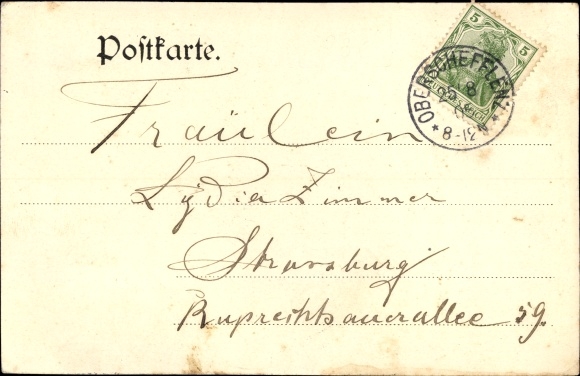 Postkarte.
5 5
OBERSCHEFFLENZ
8
* 8-12 N *
Fräulein
Lydia Zimmer
Strassburg
Ruprechtsauerallee 59.